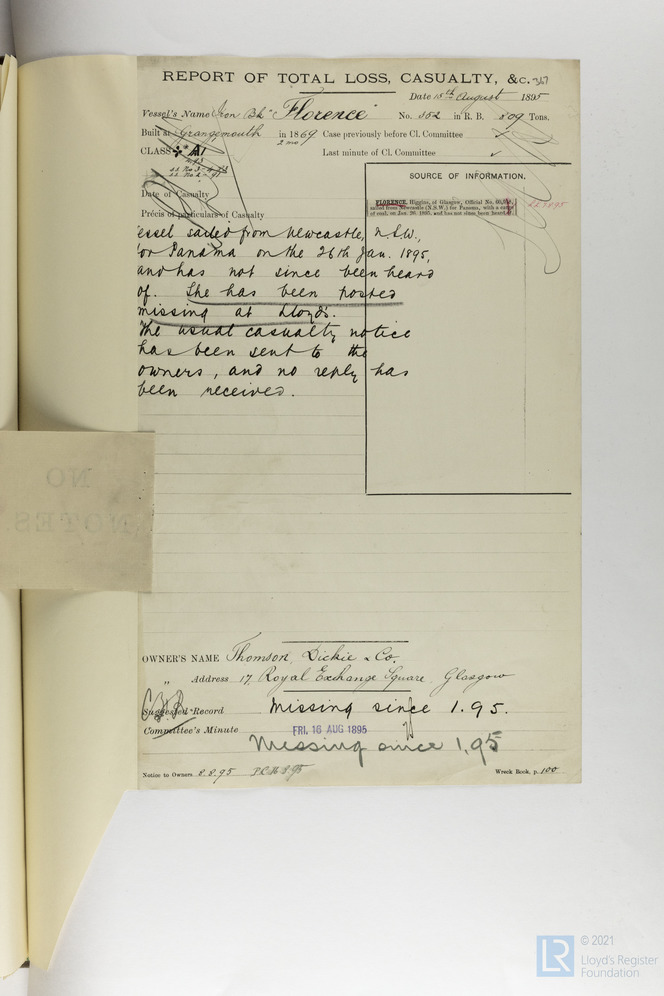 REPORT OF TOTAL LOSS, CASUALTY, &c. 367
Date 15th August 1895
Vessel's Name Iron Bk "Florence" No. 352 in R. B. 809 Tons.
Built at Grangemouth in 1869 Case previously before Cl. Committee
2 mo
CLASS A1 Last minute of Cl. Committee
SOURCE OF INFORMATION.
Date of Casualty
FLORENCE, Higgins, of Glasgow, Official No.
sailed from Newcastle (N.S.W.) for Panama, with a
of coal, on Jan. 26, 1895, and has not since been heard of
Précis of particulars of Casualty
essel sailed from Newcastle, N.S.W.,
for Panama on the 26th Jan. 1895,
and has not since been heard
of. She has been posted
missing at Lloyd's.
The usual casualty notice
has been sent to the
owners, and no reply has
been received.
NO
NOTES.
OWNER'S NAME Thomson, Dickie & Co.
" Address 17, Royal Exchange Square, Glasgow
Suggested Record Missing since 1.95.
Committee's Minute FRI. 16 AUG 1895
Missing since 1.95
Notice to Owners 8.8.95 Wreck Book, p. 100
© 2021
Lloyd's Register
Foundation
LR